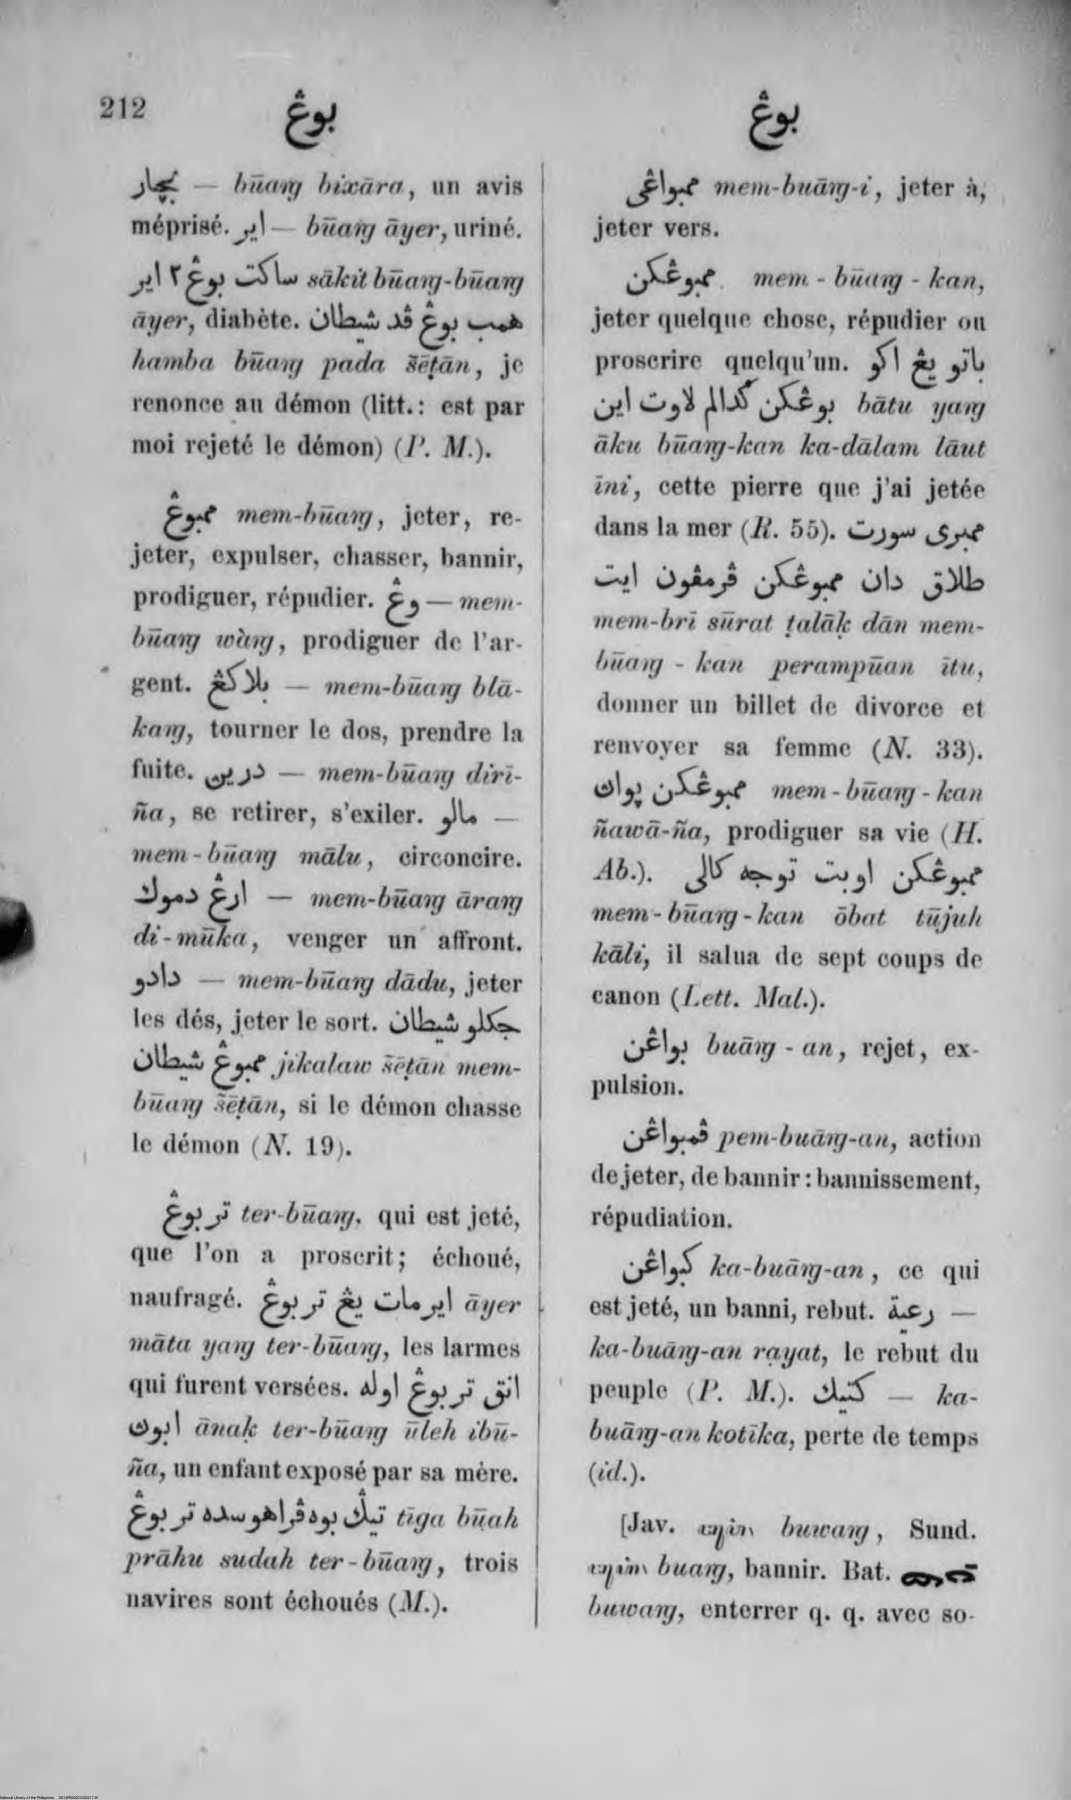 212
بوڠ
بوڠ
بچار — būaŋ bixāra, un avis
méprisé. اير — būaŋ āyer, uriné.
ساكت بوڠ٢ اير sākit būaŋ-būaŋ
āyer, diabète. همب بوڠ ڤد شيطان
hamba būaŋ pada šēṭān, je
renonce au démon (litt.: est par
moi rejeté le démon) (P. M.).
ممبوڠ mem-būaŋ, jeter, re-
jeter, expulser, chasser, bannir,
prodiguer, répudier. وڠ — mem-
būaŋ wàŋ, prodiguer de l'ar-
gent. بلاكڠ — mem-būaŋ blā-
kaŋ, tourner le dos, prendre la
fuite. درين — mem-būaŋ dirī-
ña, se retirer, s'exiler. مالو —
mem-būaŋ mālu, circoncire.
ارڠ دموك — mem-būaŋ āraŋ
di-mūka, venger un affront.
دادو — mem-būaŋ dādu, jeter
les dés, jeter le sort. جكلو شيطان
ممبوڠ شيطان jikalaw šēṭān mem-
būaŋ šēṭān, si le démon chasse
le démon (N. 19).
تربوڠ ter-būaŋ, qui est jeté,
que l'on a proscrit; échoué,
naufragé. ايرمات يڠ تربوڠ āyer
māta yaŋ ter-būaŋ, les larmes
qui furent versées. انق تربوڠ اوله
ابوڽ ānaḳ ter-būaŋ ūleh ibū-
ña, un enfant exposé par sa mère.
تيݢ بوه ڤراهو سده تربوڠ tīga būah
prāhu sudah ter-būaŋ, trois
navires sont échoués (M.).
ممبواڠى mem-buāŋ-i, jeter à,
jeter vers.
ممبوڠكن mem-būaŋ-kan,
jeter quelque chose, répudier ou
proscrire quelqu'un. باتو يڠ اكو
بوڠكن كدالم لاوت اين bātu yaŋ
āku būaŋ-kan ka-dālam lāut
īni, cette pierre que j'ai jetée
dans la mer (R. 55). ممبرى سورت
طلاق دان ممبوڠكن ڤرمڤون ايت
mem-brī sūrat ṭalāḳ dān mem-
būaŋ-kan perampūan ītu,
donner un billet de divorce et
renvoyer sa femme (N. 33).
ممبوڠكن ڽواڽ mem-būaŋ-kan
ñawā-ña, prodiguer sa vie (H.
Ab.). ممبوڠكن اوبت توجه كالى
mem-būaŋ-kan ōbat tūjuh
kāli, il salua de sept coups de
canon (Lett. Mal.).
بواڠن buāŋ-an, rejet, ex-
pulsion.
ڤمبواڠن pem-buāŋ-an, action
de jeter, de bannir: bannissement,
répudiation.
كبواڠن ka-buāŋ-an, ce qui
est jeté, un banni, rebut. رعية —
ka-buāŋ-an rayat, le rebut du
peuple (P. M.). كتيك — ka-
buāŋ-an kotīka, perte de temps
(id.).
[Jav. buwaŋ, Sund.
buaŋ, bannir. Bat.
buwaŋ, enterrer q. q. avec so-